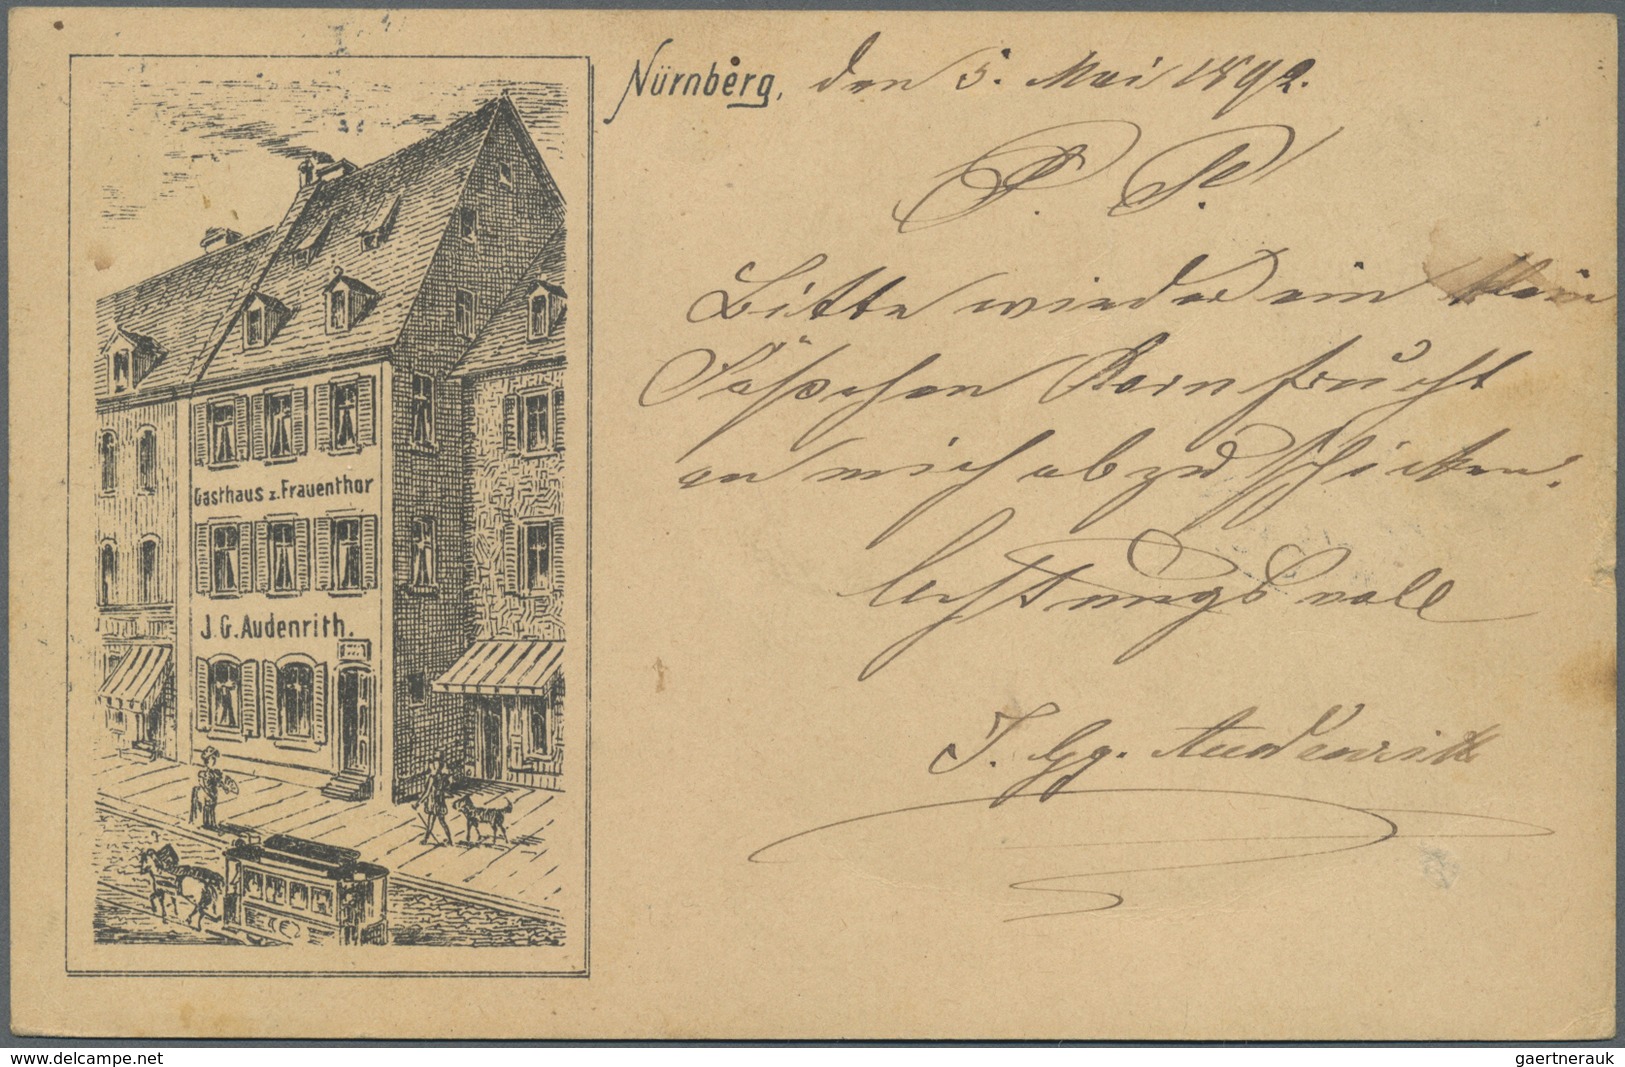 Nürnberg, den 5. Mai 1892.
P. P.
Bitte wieder ein klein
Fäßchen Kornfrucht
an mich abzuschicken.
Achtungsvoll
J. Gg. Audenrith
Gasthaus z. Frauenthor
J. G. Audenrith.
www.delcampe.net
gaertnerauk